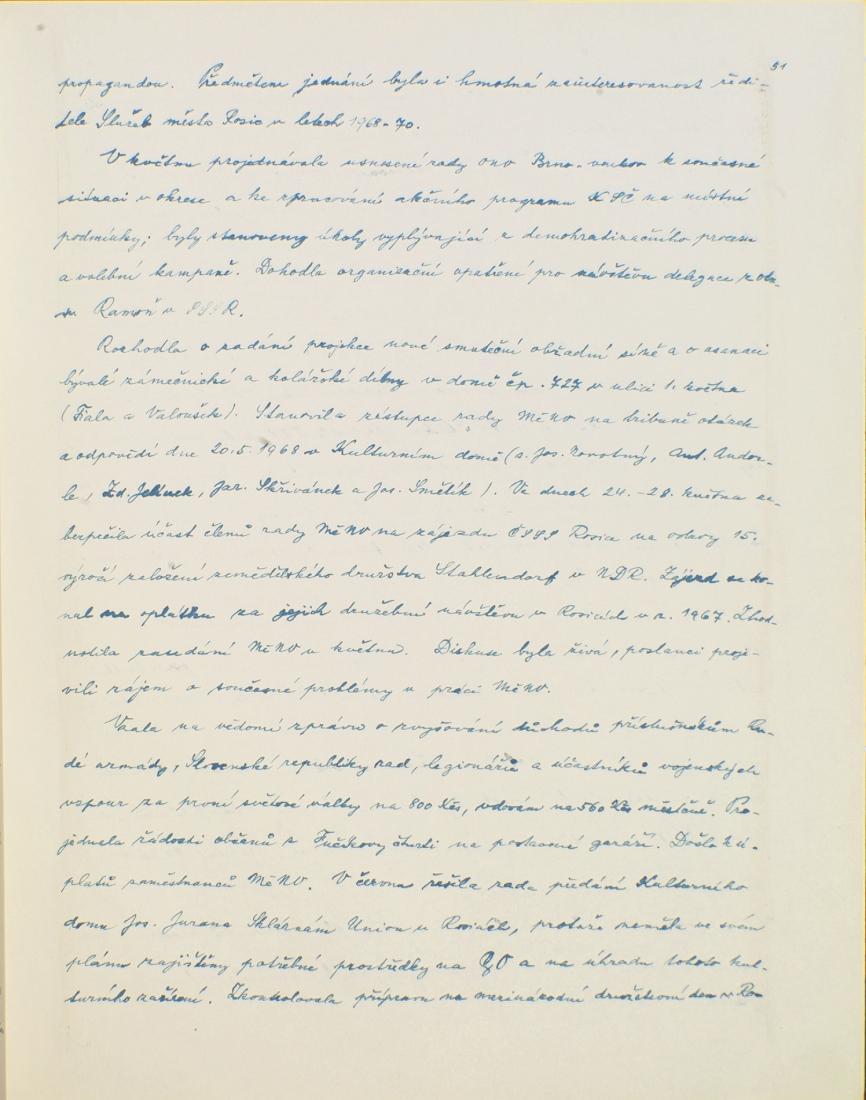 51
propagandou. Předmětem jednání byla i hmotná zainteresovanost ředi-
tele Služeb města Rosic v letech 1968-70.
V květnu projednávala usnesení rady ONV Brno-venkov k současné
situaci v okrese a ke zpracování akčního programu KSČ na místní
podmínky; byly stanoveny úkoly vyplývající z demokratizačního procesu
a volební kampaně. Dohodla organizační opatření pro návštěvu delegace z ob-
Ramoň v SSSR.
Rozhodla o zadání projekce nové smuteční obřadní síně a o asanaci
bývalé zámečnické a kolářské dílny v domě čp. 727 v ulici 1. května
(Fiala a Valoušek). Stanovila zástupce rady MěNV na tribuně otázek
a odpovědí dne 20.5.1968 v Kulturním domě (s. Jos. Novotný, Ant. Andor-
le, Zd. Jelínek, Jar. Skřivánek a Jos. Smětík). Ve dnech 24.-28. května za-
bezpečila účast členů rady MěNV na zájezdu ČSSS Rosice na oslavy 15.
výročí založení zemědělského družstva Stahlendorf v NDR. Zájezd se ko-
nal na oplátku za jejich družební návštěvu v Rosicích v r. 1967. Zhod-
notila zasedání MěNV v květnu. Diskuse byla živá, poslanci proje-
vili zájem o současné problémy v práci MěNV.
Vzala na vědomí zprávu o zvyšování důchodů příslušníkům Ru-
dé armády, Slovenské republiky rad, legionářů a účastníků vojenských
vzpour za první světové války na 800 Kčs, vdovám na 560 Kčs měsíčně. Pro-
jednala žádosti občanů z Fučíkovy čtvrti na postavení garáží. Došlo k ú-
platů zaměstnanců MěNV. V červnu řešila rada předání Kulturního
domu Jos. Jurana Sklárnám Union v Rosicích, protože neměla ve svém
plánu zajištěny potřebné prostředky na GO a na úhradu tohoto kul-
turního zařízení. Zkontrolovala přípravu na mezinárodní družstevní den v Ro-